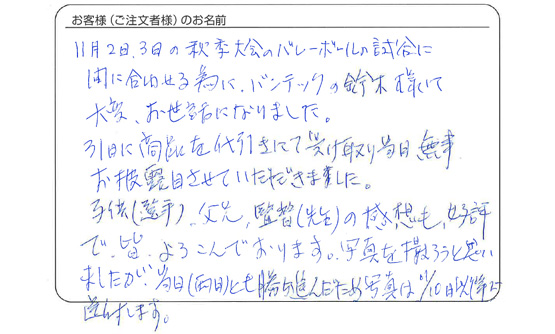 お客様(ご注文者様)のお名前
11月2日,3日の秋季大会のバレーボールの試合に
間に合わせる為に、バンテックの鈴木様にて
大変、お世話になりました。
31日に商品を代引きにて受け取り当日無事
お披露目させていただきました。
子供(選手)、父兄、監督(先生)の感想も、好評
で、皆、よろこんでおります。写真を撮ろうと思い
ましたが、当日(両日)とも勝ち進んだため写真は11/10日以降に
送付します。